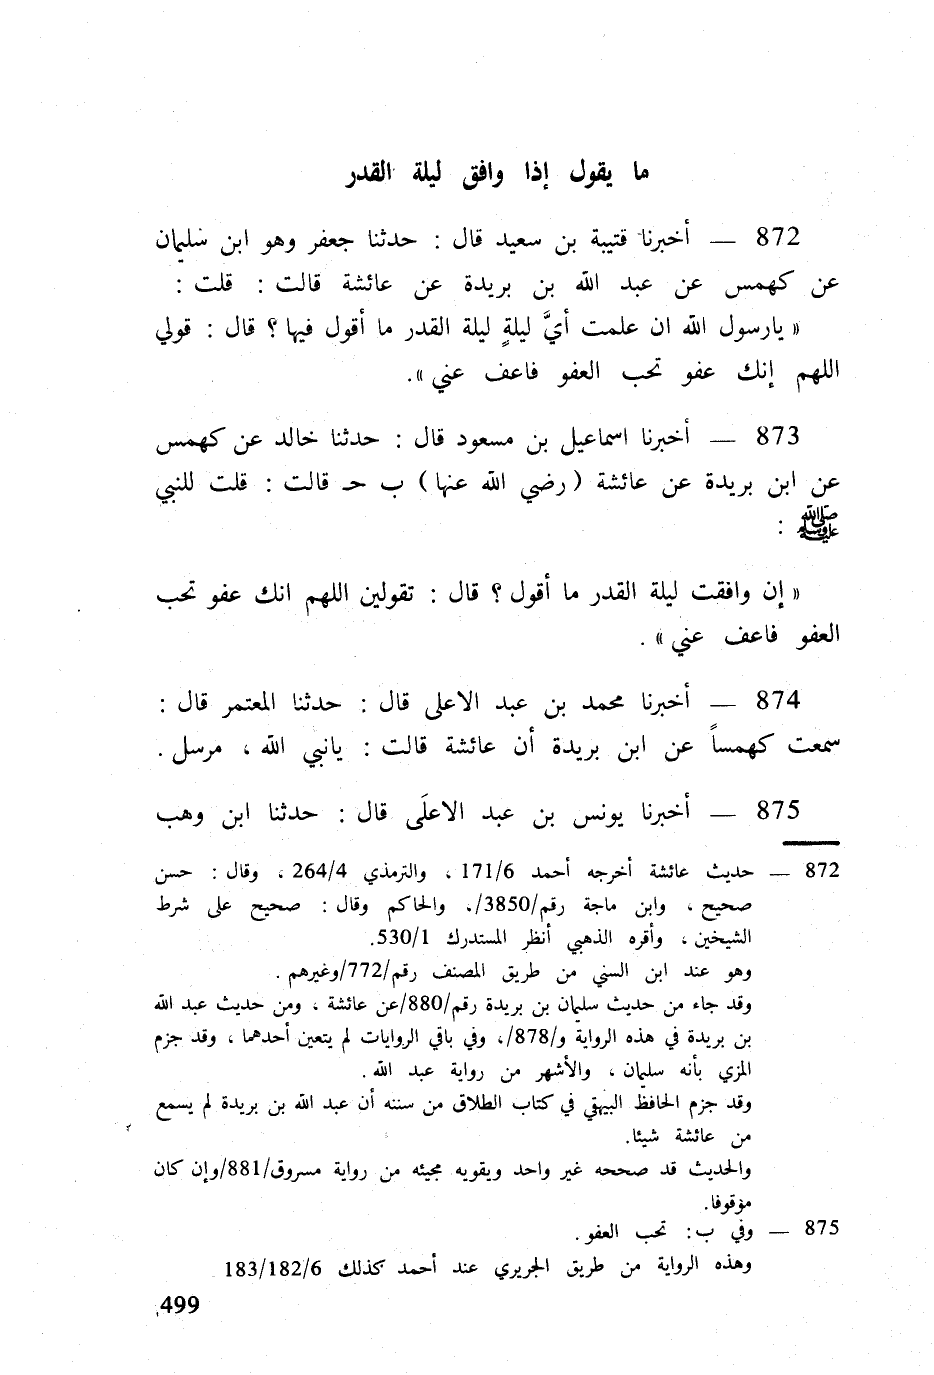 ما يقول إذا وافق ليلة القدر
872 — أخبرنا قتيبة بن سعيد قال : حدثنا جعفر وهو ابن سليمان
عن كهمس عن عبد الله بن بريدة عن عائشة قالت : قلت :
« يارسول الله ان علمت أيَّ ليلةٍ ليلة القدر ما أقول فيها ؟ قال : قولي
اللهم إنك عفو تحب العفو فاعف عني ».
873 — أخبرنا اسماعيل بن مسعود قال : حدثنا خالد عن كهمس
عن ابن بريدة عن عائشة ( رضي الله عنها ) ب حـ قالت : قلت للنبي
ﷺ :
« إن وافقت ليلة القدر ما أقول ؟ قال : تقولين اللهم انك عفو تحب
العفو فاعف عني » .
874 — أخبرنا محمد بن عبد الاعلى قال : حدثنا المعتمر قال :
سمعت كهمساً عن ابن بريدة أن عائشة قالت : يانبي الله ، مرسل .
875 — أخبرنا يونس بن عبد الاعلَى قال : حدثنا ابن وهب
872 — حديث عائشة أخرجه أحمد 171/6 ، والترمذي 264/4 ، وقال : حسن
صحيح ، وابن ماجة رقم/3850/، والحاكم وقال : صحيح على شرط
الشيخين ، وأقره الذهبي أنظر المستدرك 530/1.
وهو عند ابن السني من طريق المصنف رقم/772/وغيرهم .
وقد جاء من حديث سليمان بن بريدة رقم/880/عن عائشة ، ومن حديث عبد الله
بن بريدة في هذه الرواية و/878/، وفي باقي الروايات لم يتعين أحدهما ، وقد جزم
المزي بأنه سليمان ، والأشهر من رواية عبد الله .
وقد جزم الحافظ البيهقي في كتاب الطلاق من سننه أن عبد الله بن بريدة لم يسمع
من عائشة شيئا.
والحديث قد صححه غير واحد ويقويه مجيئه من رواية مسروق/881/وإن كان
موقوفا.
875 — وفي ب: تحب العفو .
وهذه الرواية من طريق الجريري عند أحمد كذلك 183/182/6
499